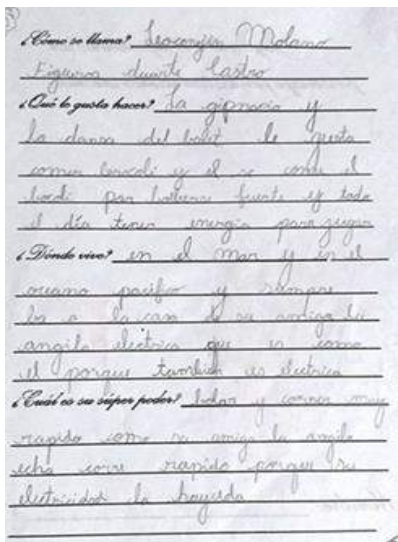 ¿Cómo se llama? Molano
Figueroa duarte Castro
¿Qué le gusta hacer? La gipnacia y
la danza del balet le gusta
comer brocoli y el se come el
por bolverse fuerte y todo
el día tener energia para jugar
¿Dónde vive? en el mar y en el
oceano pacifico y siempre
ba a la casa de su amiga la
angila electrica que es como
el porque tambien es electrica
¿Cuál es su súper poder? bolar y correr muy
rapido como su amiga la angila
echa corre rapido porque su
electricidad la hayuda